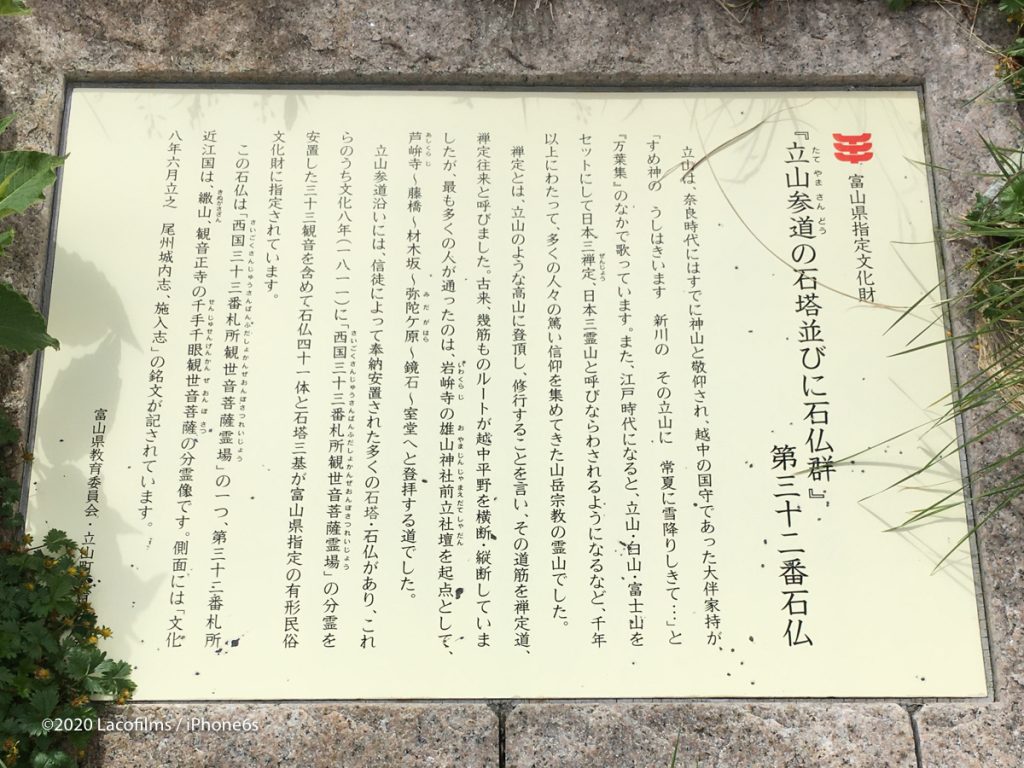 富山県指定文化財
『立山参道の石塔並びに石仏群』
第三十二番石仏
立山は、奈良時代にはすでに神山と敬仰され、越中の国守であった大伴家持が、
「すめ神の うしはきいます 新川の その立山に 常夏に雪降りしきて…」と
『万葉集』のなかで歌っています。また、江戸時代になると、立山・白山・富士山を
セットにして日本三禅定、日本三霊山と呼びならわされるようになるなど、千年
以上にわたって、多くの人々の篤い信仰を集めてきた山岳宗教の霊山でした。
禅定とは、立山のような高山に登頂し、修行することを言い、その道筋を禅定道、
禅定往来と呼びました。古来、幾筋ものルートが越中平野を横断・縦断していま
したが、最も多くの人が通ったのは、岩峅寺の雄山神社前立社壇を起点として、
芦峅寺～藤橋～材木坂～弥陀ケ原～鏡石～室堂へと登拝する道でした。
立山参道沿いには、信徒によって奉納安置された多くの石塔・石仏があり、これ
らのうち文化八年(一八一一)に「西国三十三番札所観世音菩薩霊場」の分霊を
安置した三十三観音を含めて石仏四十一体と石塔三基が富山県指定の有形民俗
文化財に指定されています。
この石仏は「西国三十三番札所観世音菩薩霊場」の一つ、第三十二番札所
近江国は、繖山、観音正寺の千手千眼観世音菩薩の分霊像です。側面には「文化
八年六月立之 尾州城内志、施入志」の銘文が記されています。
富山県教育委員会・立山町
©2020 Lacofilms / iPhone6s